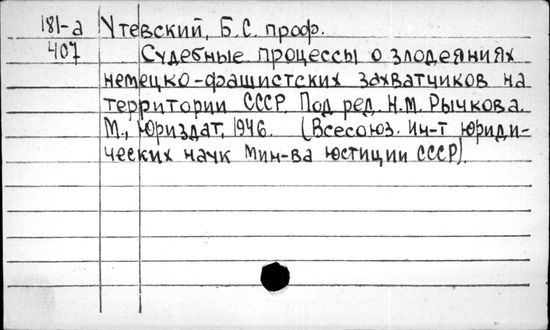 181-а Утевский, Б.С. проф.
407 Судебные процессы о злодеяниях
немецко-фашистских захватчиков на
территории СССР. Под ред. Н.М. Рычкова.
М., Юриздат, 1946. (Всесоюз. ин-т юриди-
ческих наук Мин-ва юстиции СССР).